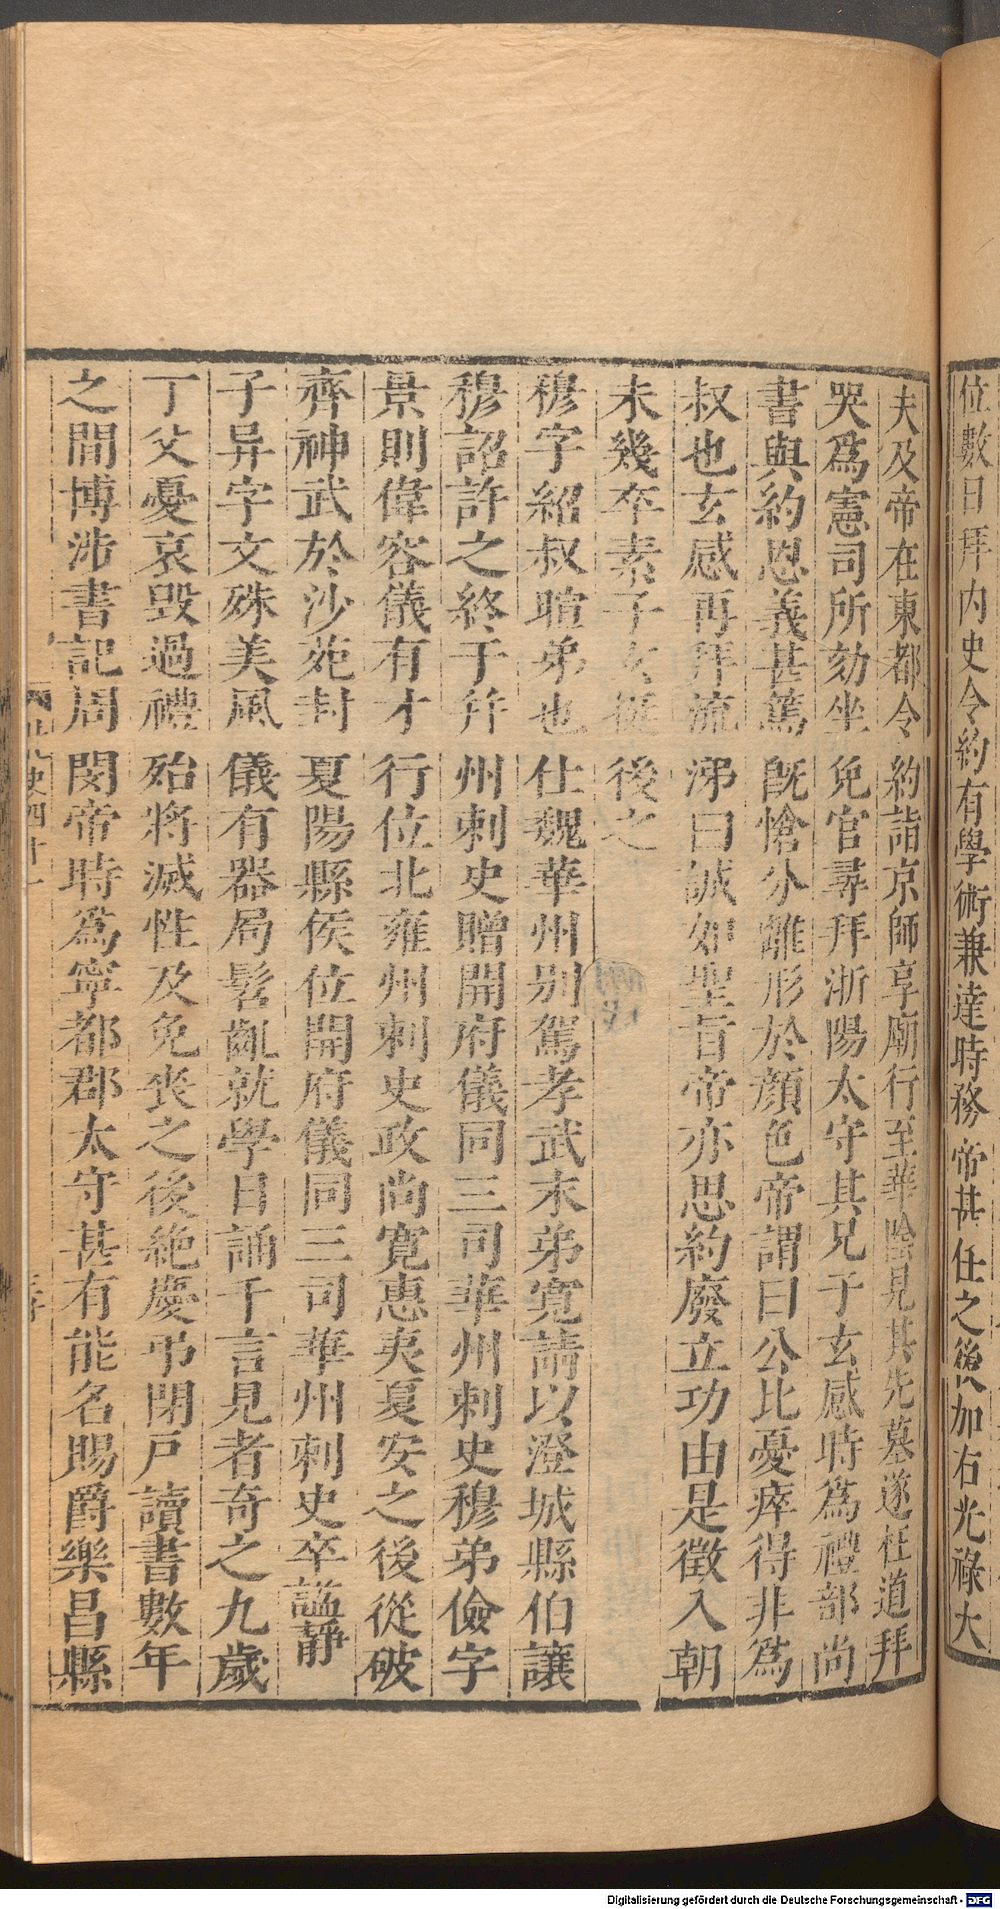 位數日拜內史令約有學術兼達時務帝甚任之後加右光祿大
夫及帝在東都令約詣京師享廟行至華陰見其先墓遂枉道拜
哭爲憲司所劾坐免官尋拜淅陽太守其兄子玄感時爲禮部尚
書與約恩義甚篤旣愴分離形於顏色帝謂曰公比憂瘁得非爲
叔也玄感再拜流涕曰誠如聖旨帝亦思約廢立功由是徵入朝
未幾卒素子玄挺後之
穆字紹叔暄弟也仕魏華州别駕孝武末弟寬請以澄城縣伯讓
穆詔許之終于幷州刺史贈開府儀同三司華州刺史穆弟儉字
景則偉容儀有才行位北雍州刺史政尚寬惠夷夏安之後從破
齊神武於沙苑封夏陽縣侯位開府儀同三司華州刺史卒謚靜
子异字文殊美風儀有器局髫齔就學日誦千言見者奇之九歲
丁父憂哀毀過禮殆將滅性及免喪之後絶慶弔閉戶讀書數年
之間博涉書記周閔帝時爲寧都郡太守甚有能名賜爵樂昌縣
Digitalisierung gefördert durch die Deutsche Forschungsgemeinschaft - DFG